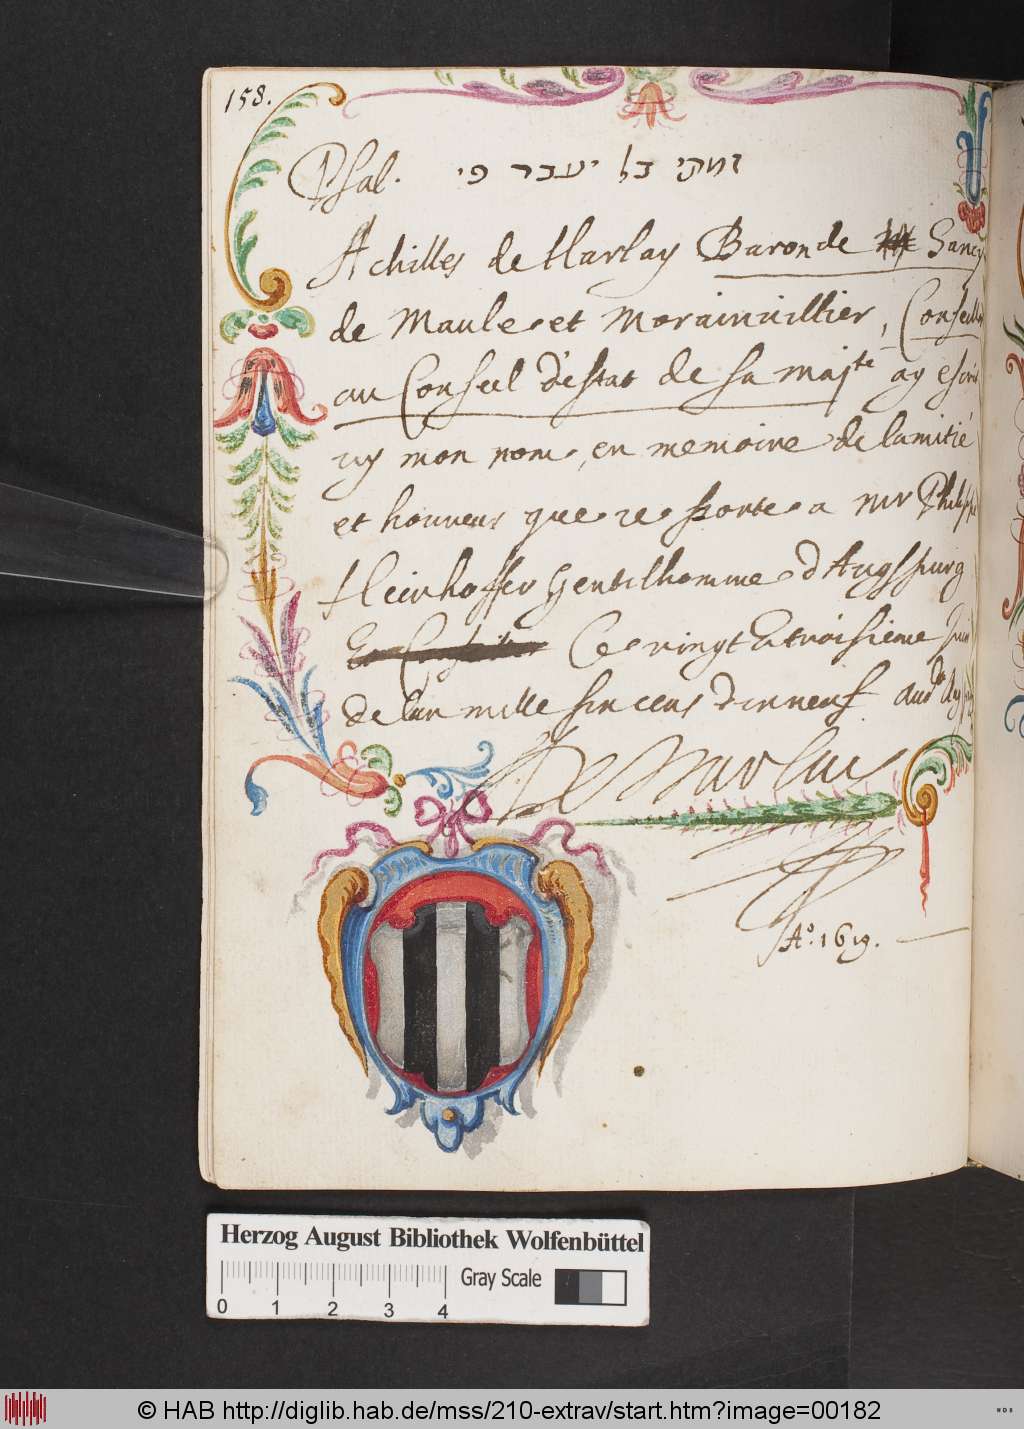 158.
Psal. זמתי בל יעבר פי
Achilles de Harlay Baron de Sancy
de Maule et Morainuillier, Conseiller
au Conseil d'estat de sa maj^te ay escrit
icy mon nom, en memoire de lamitié
et honneur que ie porte a mr Philippe
Heinhoffer gentilhomme d'Augspurg
Ce vingt et troisieme Juin
de lan mille six cens dixneuf
De Harlay
A°. 1619.
Herzog August Bibliothek Wolfenbüttel
Gray Scale
0 1 2 3 4
© HAB http://diglib.hab.de/mss/210-extrav/start.htm?image=00182